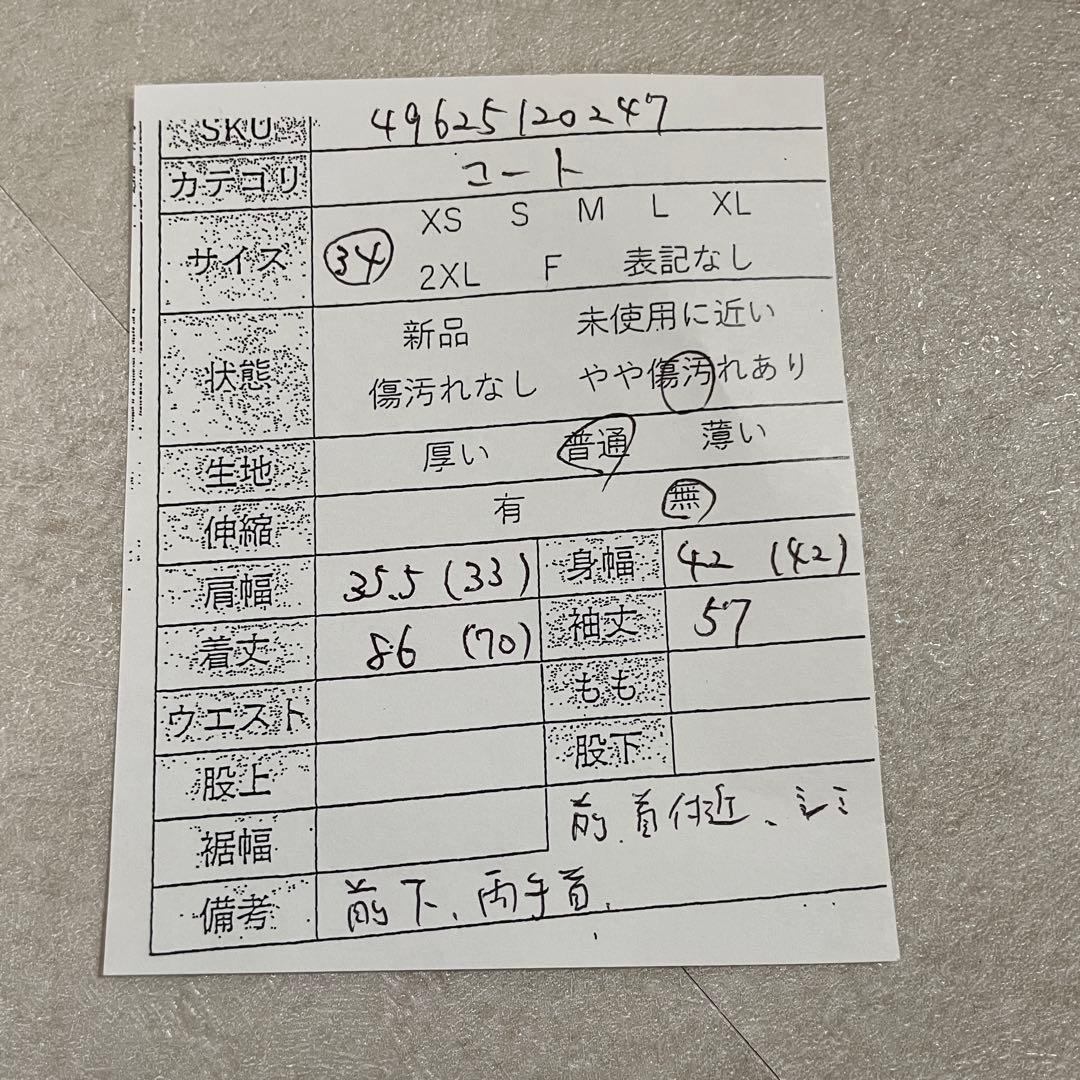 SKU 49625120247
カテゴリ コート
サイズ 34 XS S M L XL
2XL F 表記なし
状態 新品 未使用に近い
傷汚れなし やや傷汚れあり
生地 厚い 普通 薄い
伸縮 有 無
肩幅 35.5 (33) 身幅 42 (42)
着丈 86 (70) 袖丈 57
ウエスト もも
股上 股下
裾幅 前、首付近、シミ
備考 前下、両手首、